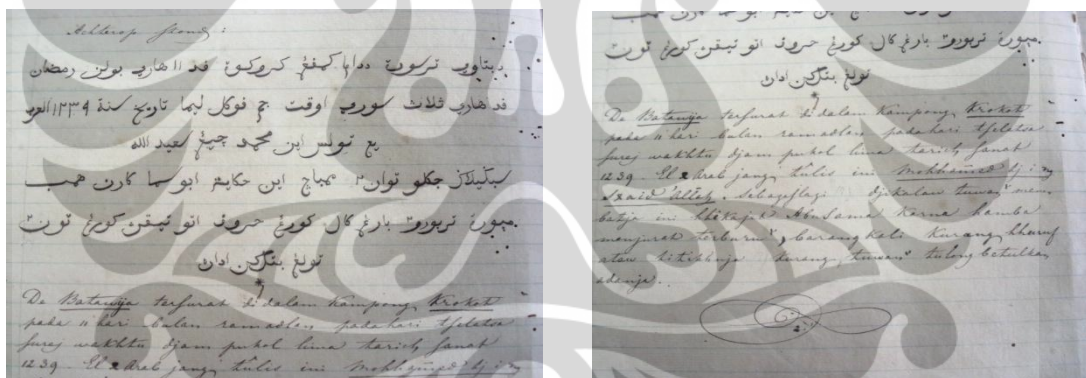 Achterop stond:
دبتاوي ترسورة ددالم كمڤڠ كروكوة ڤد ١١ هاري بولن رمضان
ڤد هاري ثلاث سوري اوقت جم ڤوكل ليما تاريخ سنة ١٢٣٩ العر
يڠ تولس اين محمد سعيد الله
جكلو توان٢ ممباچ اين حكايت ابوسما كارن همب
مپورة تربورو٢ بارڠ كال كورڠ حروف اتو تيتيقن كورڠ توان٢
تولڠ بتلكن ادان
De Batawija tersurat didalam Kampong Krokot
pada 11 hari bulan ramadlan pada hari tselatsa
surej wakhtu djam pukol lima tarich sanat
1239. El Arab jang tulis ini Mohhamad
مپورة تربورو٢ بارڠ كال كورڠ حروف اتو تيتيقن كورڠ توان٢
تولڠ بتلكن ادان
De Batawija tersurat didalam Kampong Krokot
pada 11 hari bulan ramadlan pada hari tselatsa
surej wakhtu djam pukol lima tarich sanat
1239. El Arab jang tulis ini Mohhamad
Saäid Allah. Sebageflagi djikalau tuwan² mem
batja ini hhikajat Abusama karna hamba
menjurat terburu², barang kali kurang hhuruf
atau titikknja kurang, tuwan² tulong betulkan
adanja.